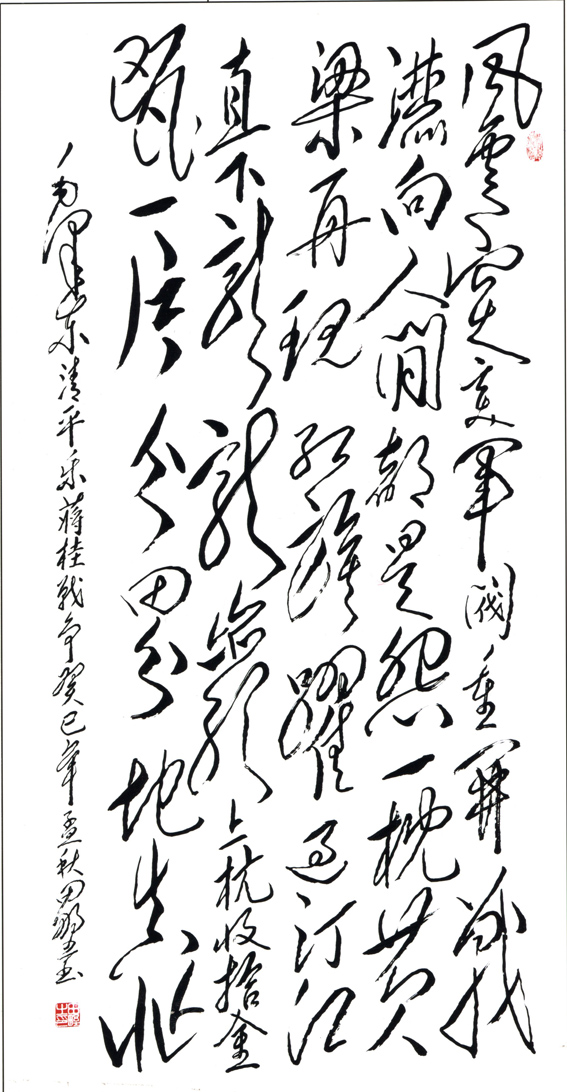 風雲突變軍閥重開戰
灑向人間都是怨一枕黃
粱再現紅旗躍過汀江
直下龍上杭收拾金
甌一片分田分地真忙
毛澤東清平乐蔣桂戰爭癸巳年孟秋田